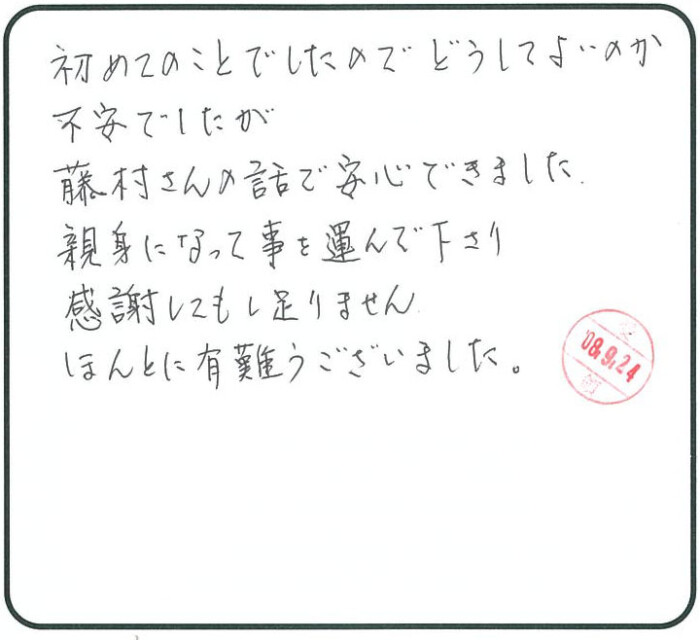 初めてのことでしたのでどうしてよいのか
不安でしたが
藤村さんの話で安心できました.
親身になって事を運んで下さり
感謝してもし足りません
ほんとに有難うございました。
'08.9.24